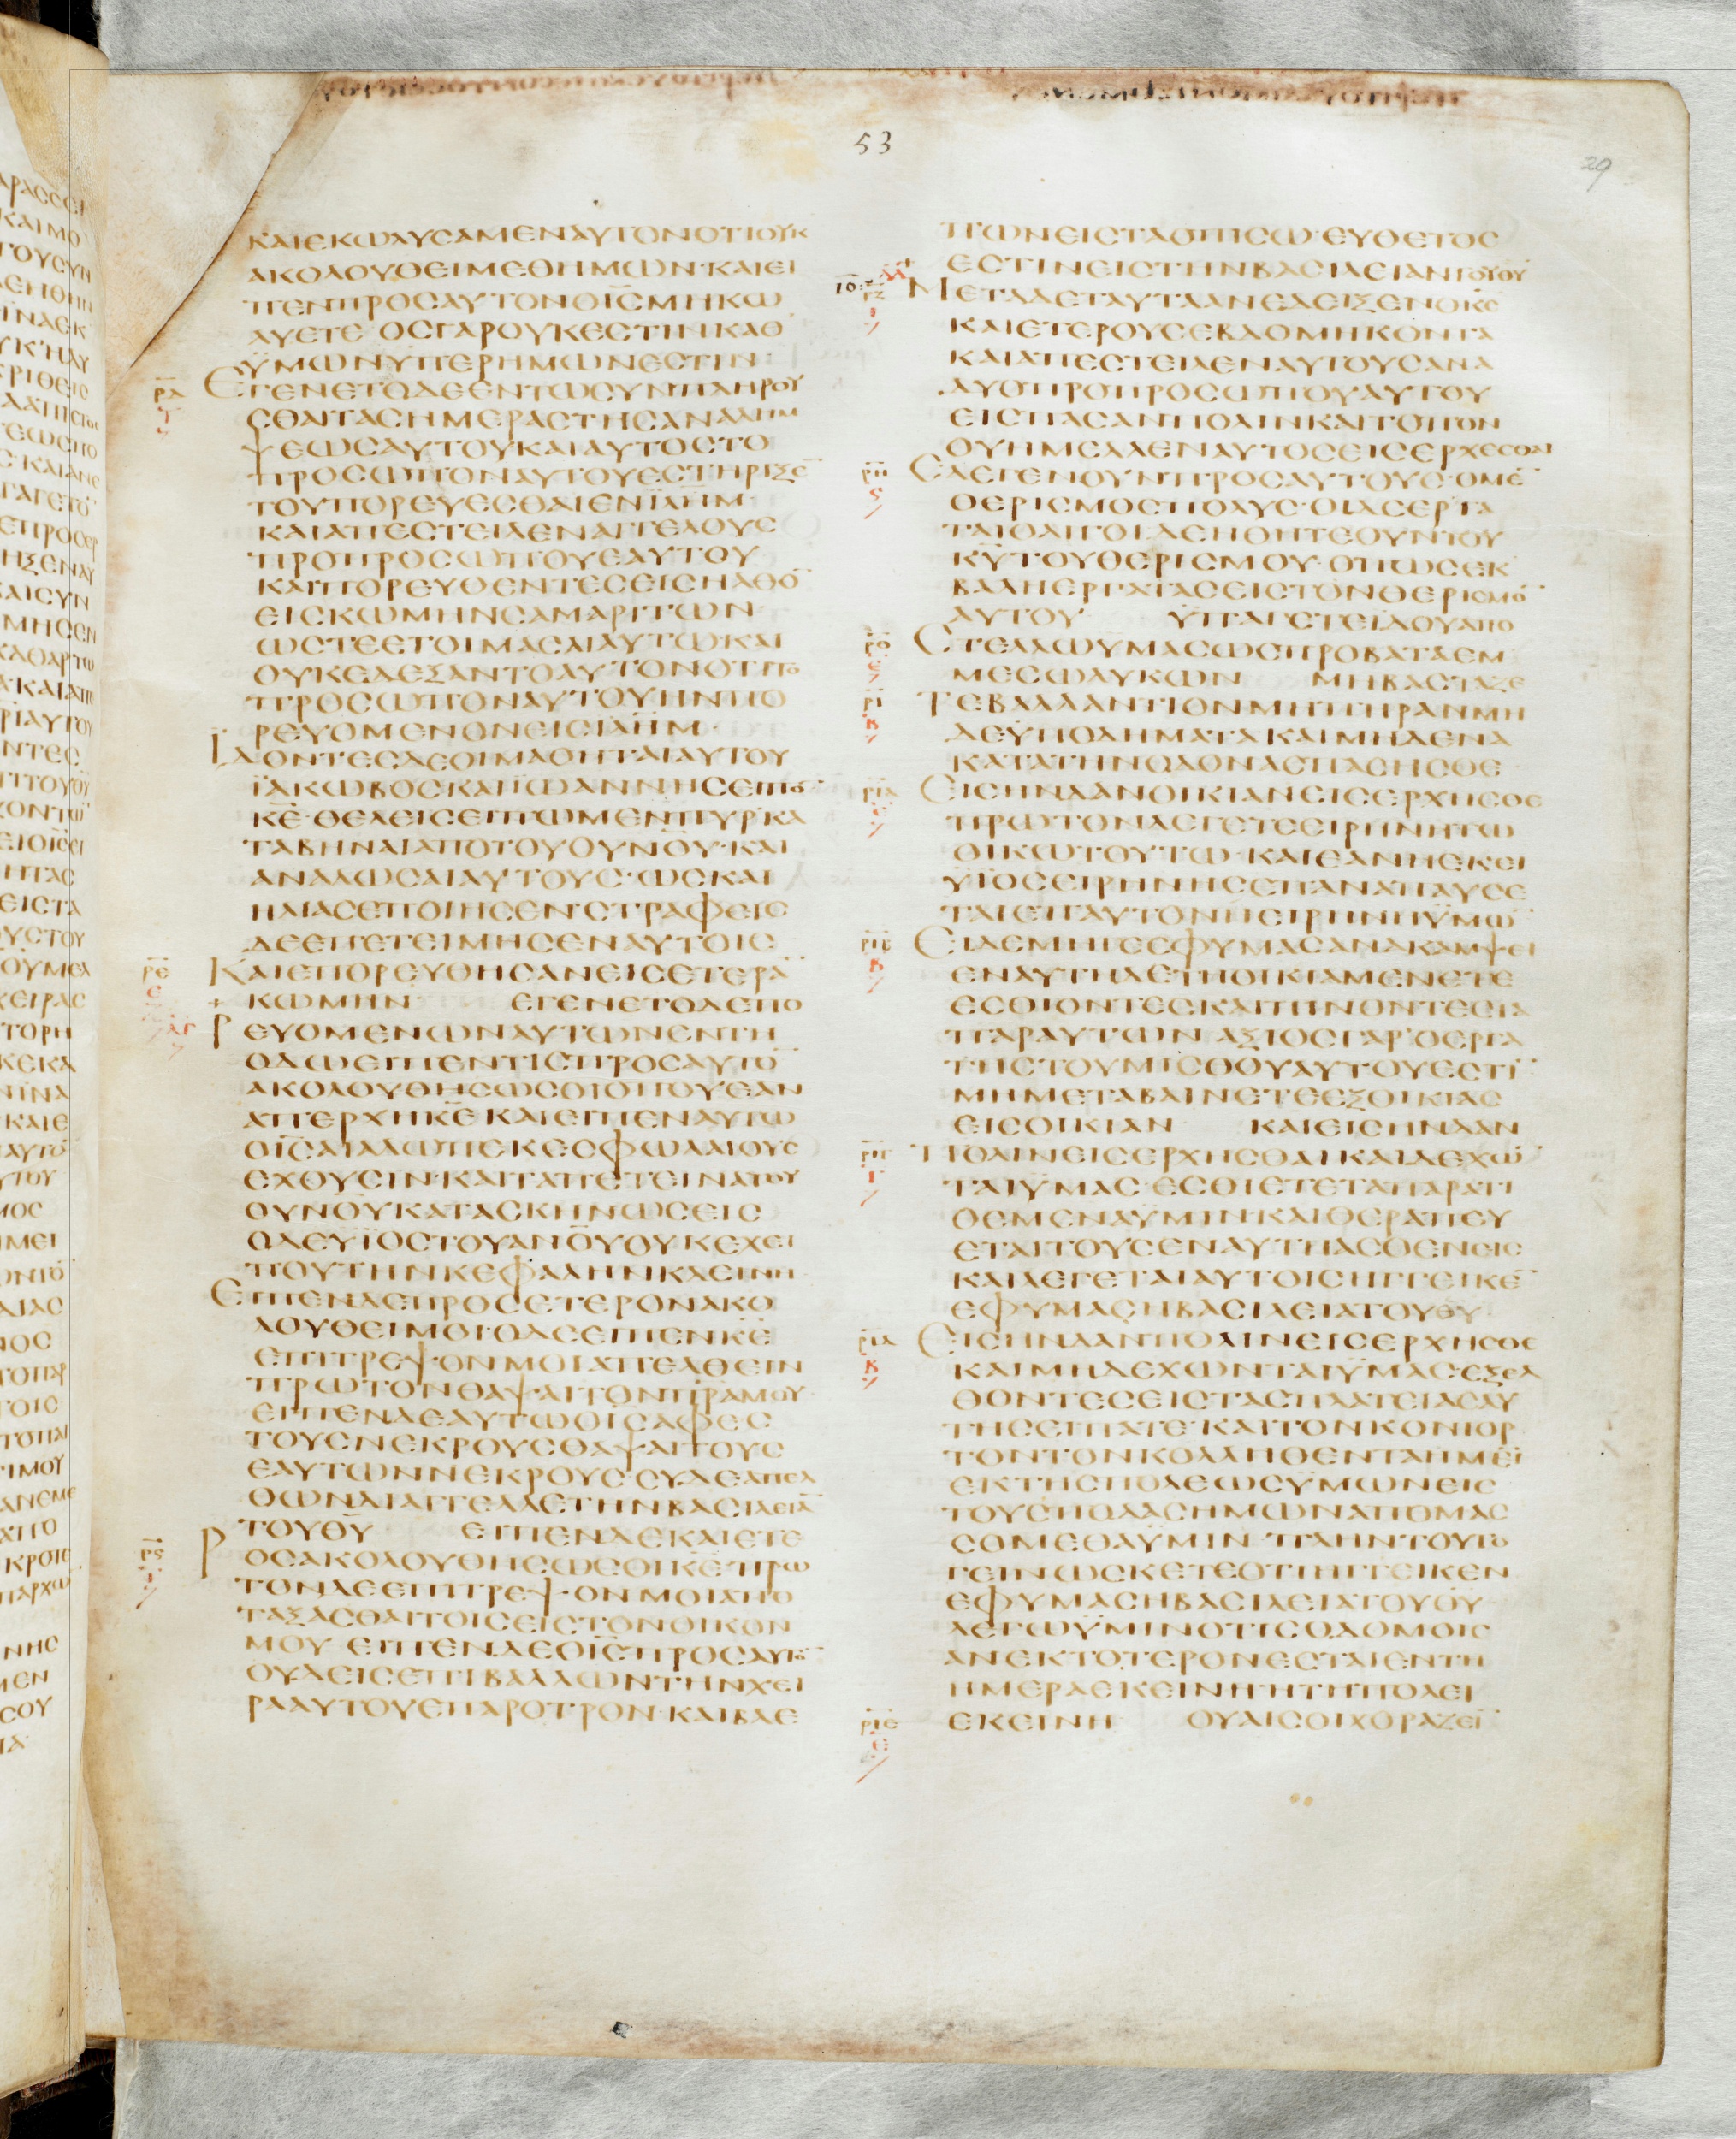 53
29
ΚΑΙΕΚΩΛΥΣΑΜΕΝΑΥΤΟΝΟΤΙΟΥΚ
ΑΚΟΛΟΥΘΕΙΜΕΘΗΜΩΝ·ΚΑΙΕΙ
ΠΕΝΠΡΟΣΑΥΤΟΝΟΙ̅Σ̅ΜΗΚΩ
ΛΥΕΤΕ ΟΣΓΑΡΟΥΚΕΣΤΙΝΚΑΘ
ΫΜΩΝΫΠΕΡΗΜΩΝΕΣΤΙΝ
ΕΓΕΝΕΤΟΔΕΕΝΤΩΣΥΝΠΛΗΡΟΥ
ΣΘΑΙΤΑΣΗΜΕΡΑΣΤΗΣΑΝΑΛΗΜ
ΨΕΩΣΑΥΤΟΥΚΑΙΑΥΤΟΣΤΟ
ΠΡΟΣΩΠΟΝΑΥΤΟΥΕΣΤΗΡΙΞΕ̅
ΤΟΥΠΟΡΕΥΕΣΘΑΙΕΝΙ̅Λ̅Η̅Μ̅·
ΚΑΙΑΠΕΣΤΕΙΛΕΝΑΓΓΕΛΟΥΣ
ΠΡΟΠΡΟΣΩΠΟΥΕΑΥΤΟΥ
ΚΑΙΠΟΡΕΥΘΕΝΤΕΣΕΙΣΗΛΘΟ̅
ΕΙΣΚΩΜΗΝΣΑΜΑΡΙΤΩΝ
ΩΣΤΕΕΤΟΙΜΑΣΑΙΑΥΤΩ·ΚΑΙ
ΟΥΚΕΔΕΞΑΝΤΟΑΥΤΟΝΟΤΙΤΟ
ΠΡΟΣΩΠΟΝΑΥΤΟΥΗΝΠΟ
ΡΕΥΟΜΕΝΟΝΕΙΣΙ̅Λ̅Η̅Μ̅·
ΙΔΟΝΤΕΣΔΕΟΙΜΑΘΗΤΑΙΑΥΤΟΥ
ΪΑΚΩΒΟΣΚΑΙΪΩΑΝΝΗΣΕΙΠΟ̅
Κ̅Ε̅·ΘΕΛΕΙΣΕΙΠΩΜΕΝΠΥΡΚΑ
ΤΑΒΗΝΑΙΑΠΟΤΟΥΟΥΝ̅Ο̅Υ̅·ΚΑΙ
ΑΝΑΛΩΣΑΙΑΥΤΟΥΣ·ΩΣΚΑΙ
ΗΛΙΑΣΕΠΟΙΗΣΕΝ·ΣΤΡΑΦΕΙΣ
ΔΕΕΠΕΤΕΙΜΗΣΕΝΑΥΤΟΙΣ
ΚΑΙΕΠΟΡΕΥΘΗΣΑΝΕΙΣΕΤΕΡΑ̅
ΚΩΜΗΝ ΕΓΕΝΕΤΟΔΕΠΟ
ΡΕΥΟΜΕΝΩΝΑΥΤΩΝΕΝΤΗ
ΟΔΩΕΙΠΕΝΤΙΣΠΡΟΣΑΥΤΟ̅
ΑΚΟΛΟΥΘΗΣΩΣΟΙΟΠΟΥΕΑΝ
ΑΠΕΡΧΗΚ̅Ε̅ ΚΑΙΕΙΠΕΝΑΥΤΩ
ΟΙ̅Σ̅ΑΙΑΛΩΠΕΚΕΣΦΩΛΑΙΟΥΣ
ΕΧΟΥΣΙΝ·ΚΑΙΤΑΠΕΤΕΙΝΑΤΟΥ
ΟΥΝ̅Ο̅Υ̅ΚΑΤΑΣΚΗΝΩΣΕΙΣ
ΟΔΕΥΪΟΣΤΟΥΑΝ̅Ο̅Υ̅ΟΥΚΕΧΕΙ
ΠΟΥΤΗΝΚΕΦΑΛΗΝΚΛΕΙΝΗ
ΕΙΠΕΝΔΕΠΡΟΣΕΤΕΡΟΝΑΚΟ
ΛΟΥΘΕΙΜΟΙ·ΟΔΕΕΙΠΕΝΚ̅Ε̅
ΕΠΙΤΡΕΨΟΝΜΟΙΑΠΕΛΘΕΙΝ
ΠΡΩΤΟΝΘΑΨΑΙΤΟΝΠ̅Ρ̅Α̅ΜΟΥ
ΕΙΠΕΝΔΕΑΥΤΩΟΙ̅Σ̅ΑΦΕΣ
ΤΟΥΣΝΕΚΡΟΥΣΘΑΨΑΙΤΟΥΣ
ΕΑΥΤΩΝΝΕΚΡΟΥΣ·ΣΥΔΕΑΠΕΛ
ΘΩΝΔΙΑΓΓΕΛΛΕΤΗΝΒΑΣΙΛΕΙΑ̅
ΤΟΥΘ̅Υ̅ ΕΙΠΕΝΔΕΚΑΙΕΤΕ
ΡΟΣΑΚΟΛΟΥΘΗΣΩΣΟΙΚ̅Ε̅·ΠΡΩ
ΤΟΝΔΕΕΠΙΤΡΕΨΟΝΜΟΙΑΠΟ
ΤΑΞΑΣΘΑΙΤΟΙΣΕΙΣΤΟΝΟΙΚΟΝ
ΜΟΥ ΕΙΠΕΝΔΕΟΙ̅Σ̅ΠΡΟΣΑΥΤΟ̅
ΟΥΔΕΙΣΕΠΙΒΑΛΛΩΝΤΗΝΧΕΙ
ΡΑΑΥΤΟΥΕΠΑΡΟΤΡΟΝ·ΚΑΙΒΛΕ
ΠΩΝΕΙΣΤΑΟΠΙΣΩ·ΕΥΘΕΤΟΣ
ΕΣΤΙΝΕΙΣΤΗΝΒΑΣΙΛΕΙΑΝΤΟΥΘ̅Υ̅
ΜΕΤΑΔΕΤΑΥΤΑΑΝΕΔΕΙΞΕΝΟΚ̅Σ̅
ΚΑΙΕΤΕΡΟΥΣΕΒΔΟΜΗΚΟΝΤΑ
ΚΑΙΑΠΕΣΤΕΙΛΕΝΑΥΤΟΥΣΑΝΑ
ΔΥΟΠΡΟΠΡΟΣΩΠΟΥΑΥΤΟΥ
ΕΙΣΠΑΣΑΝΠΟΛΙΝΚΑΙΤΟΠΟΝ
ΟΥΗΜΕΛΛΕΝΑΥΤΟΣΕΙΣΕΡΧΕΣΘΑΙ
ΕΛΕΓΕΝΟΥΝΠΡΟΣΑΥΤΟΥΣ·ΟΜΕ̅
ΘΕΡΙΣΜΟΣΠΟΛΥΣ·ΟΙΔΕΕΡΓΑ
ΤΑΙΟΛΙΓΟΙ ΔΕΗΘΗΤΕΟΥΝΤΟΥ
Κ̅Υ̅ΤΟΥΘΕΡΙΣΜΟΥ·ΟΠΩΣΕΚ
ΒΑΛΗΕΡΓΑΤΑΣΕΙΣΤΟΝΘΕΡΙΣΜΟ̅
ΑΥΤΟΥ ΫΠΑΓΕΤΕΪΔΟΥΑΠΟ
ΣΤΕΛΛΩΥΜΑΣΩΣΠΡΟΒΑΤΑΕΜ
ΜΕΣΩΛΥΚΩΝ ΜΗΒΑΣΤΑΖΕ
ΤΕΒΑΛΛΑΝΤΙΟΝΜΗΠΗΡΑΝΜΗ
ΔΕΫΠΟΔΗΜΑΤΑΚΑΙΜΗΔΕΝΑ
ΚΑΤΑΤΗΝΟΔΟΝΑΣΠΑΣΗΣΘΕ
ΕΙΣΗΝΔΑΝΟΙΚΙΑΝΕΙΣΕΡΧΗΣΘΕ
ΠΡΩΤΟΝΛΕΓΕΤΕΕΙΡΗΝΗΤΩ
ΟΙΚΩΤΟΥΤΩ·ΚΑΙΕΑΝΗΕΚΕΙ
ΫΪΟΣΕΙΡΗΝΗΣΕΠΑΝΑΠΑΥΣΕ
ΤΑΙΕΠΑΥΤΟΝΗΕΙΡΗΝΗΫΜΩ̅
ΕΙΔΕΜΗΓΕΕΦΥΜΑΣΑΝΑΚΑΜΨΕΙ
ΕΝΑΥΤΗΔΕΤΗΟΙΚΙΑΜΕΝΕΤΕ
ΕΣΘΙΟΝΤΕΣΚΑΙΠΙΝΟΝΤΕΣΤΑ
ΠΑΡΑΥΤΩΝ ΑΞΙΟΣΓΑΡΟΕΡΓΑ
ΤΗΣΤΟΥΜΙΣΘΟΥΑΥΤΟΥΕΣΤΙ̅
ΜΗΜΕΤΑΒΑΙΝΕΤΕΕΞΟΙΚΙΑΣ
ΕΙΣΟΙΚΙΑΝ ΚΑΙΕΙΣΗΝΔΑΝ
ΠΟΛΙΝΕΙΣΕΡΧΗΣΘΑΙΚΑΙΔΕΧΩ̅
ΤΑΙΫΜΑΣ·ΕΣΘΙΕΤΕΤΑΠΑΡΑΤΙ
ΘΕΜΕΝΑΫΜΙΝ·ΚΑΙΘΕΡΑΠΕΥ
ΕΤΑΙΤΟΥΣΕΝΑΥΤΗΑΣΘΕΝΕΙΣ
ΚΑΙΛΕΓΕΤΑΙΑΥΤΟΙΣΗΓΓΕΙΚΕ̅
ΕΦΥΜΑΣΗΒΑΣΙΛΕΙΑΤΟΥΘ̅Υ̅
ΕΙΣΗΝΔΑΝΠΟΛΙΝΕΙΣΕΡΧΗΣΘΕ
ΚΑΙΜΗΔΕΧΩΝΤΑΙΫΜΑΣ·ΕΞΕΛ
ΘΟΝΤΕΣΕΙΣΤΑΣΠΛΑΤΕΙΑΣΑΥ
ΤΗΣΕΙΠΑΤΕ·ΚΑΙΤΟΝΚΟΝΙΟΡ
ΤΟΝΤΟΝΚΟΛΛΗΘΕΝΤΑΗΜΕΙ̅
ΕΚΤΗΣΠΟΛΕΩΣΥΜΩΝΕΙΣ
ΤΟΥΣΠΟΔΑΣΗΜΩΝΑΠΟΜΑΣ
ΣΟΜΕΘΑΫΜΙΝ·ΠΛΗΝΤΟΥΤΟ
ΓΕΙΝΩΣΚΕΤΕΟΤΙΗΓΓΕΙΚΕΝ
ΕΦΥΜΑΣΗΒΑΣΙΛΕΙΑΤΟΥΘ̅Υ̅
ΛΕΓΩΫΜΙΝΟΤΙΣΟΔΟΜΟΙΣ
ΑΝΕΚΤΟΤΕΡΟΝΕΣΤΑΙΕΝΤΗ
ΗΜΕΡΑΕΚΕΙΝΗΗΤΗΠΟΛΕΙ
ΕΚΕΙΝΗ ΟΥΑΙΣΟΙΧΟΡΑΖΕΙ̅